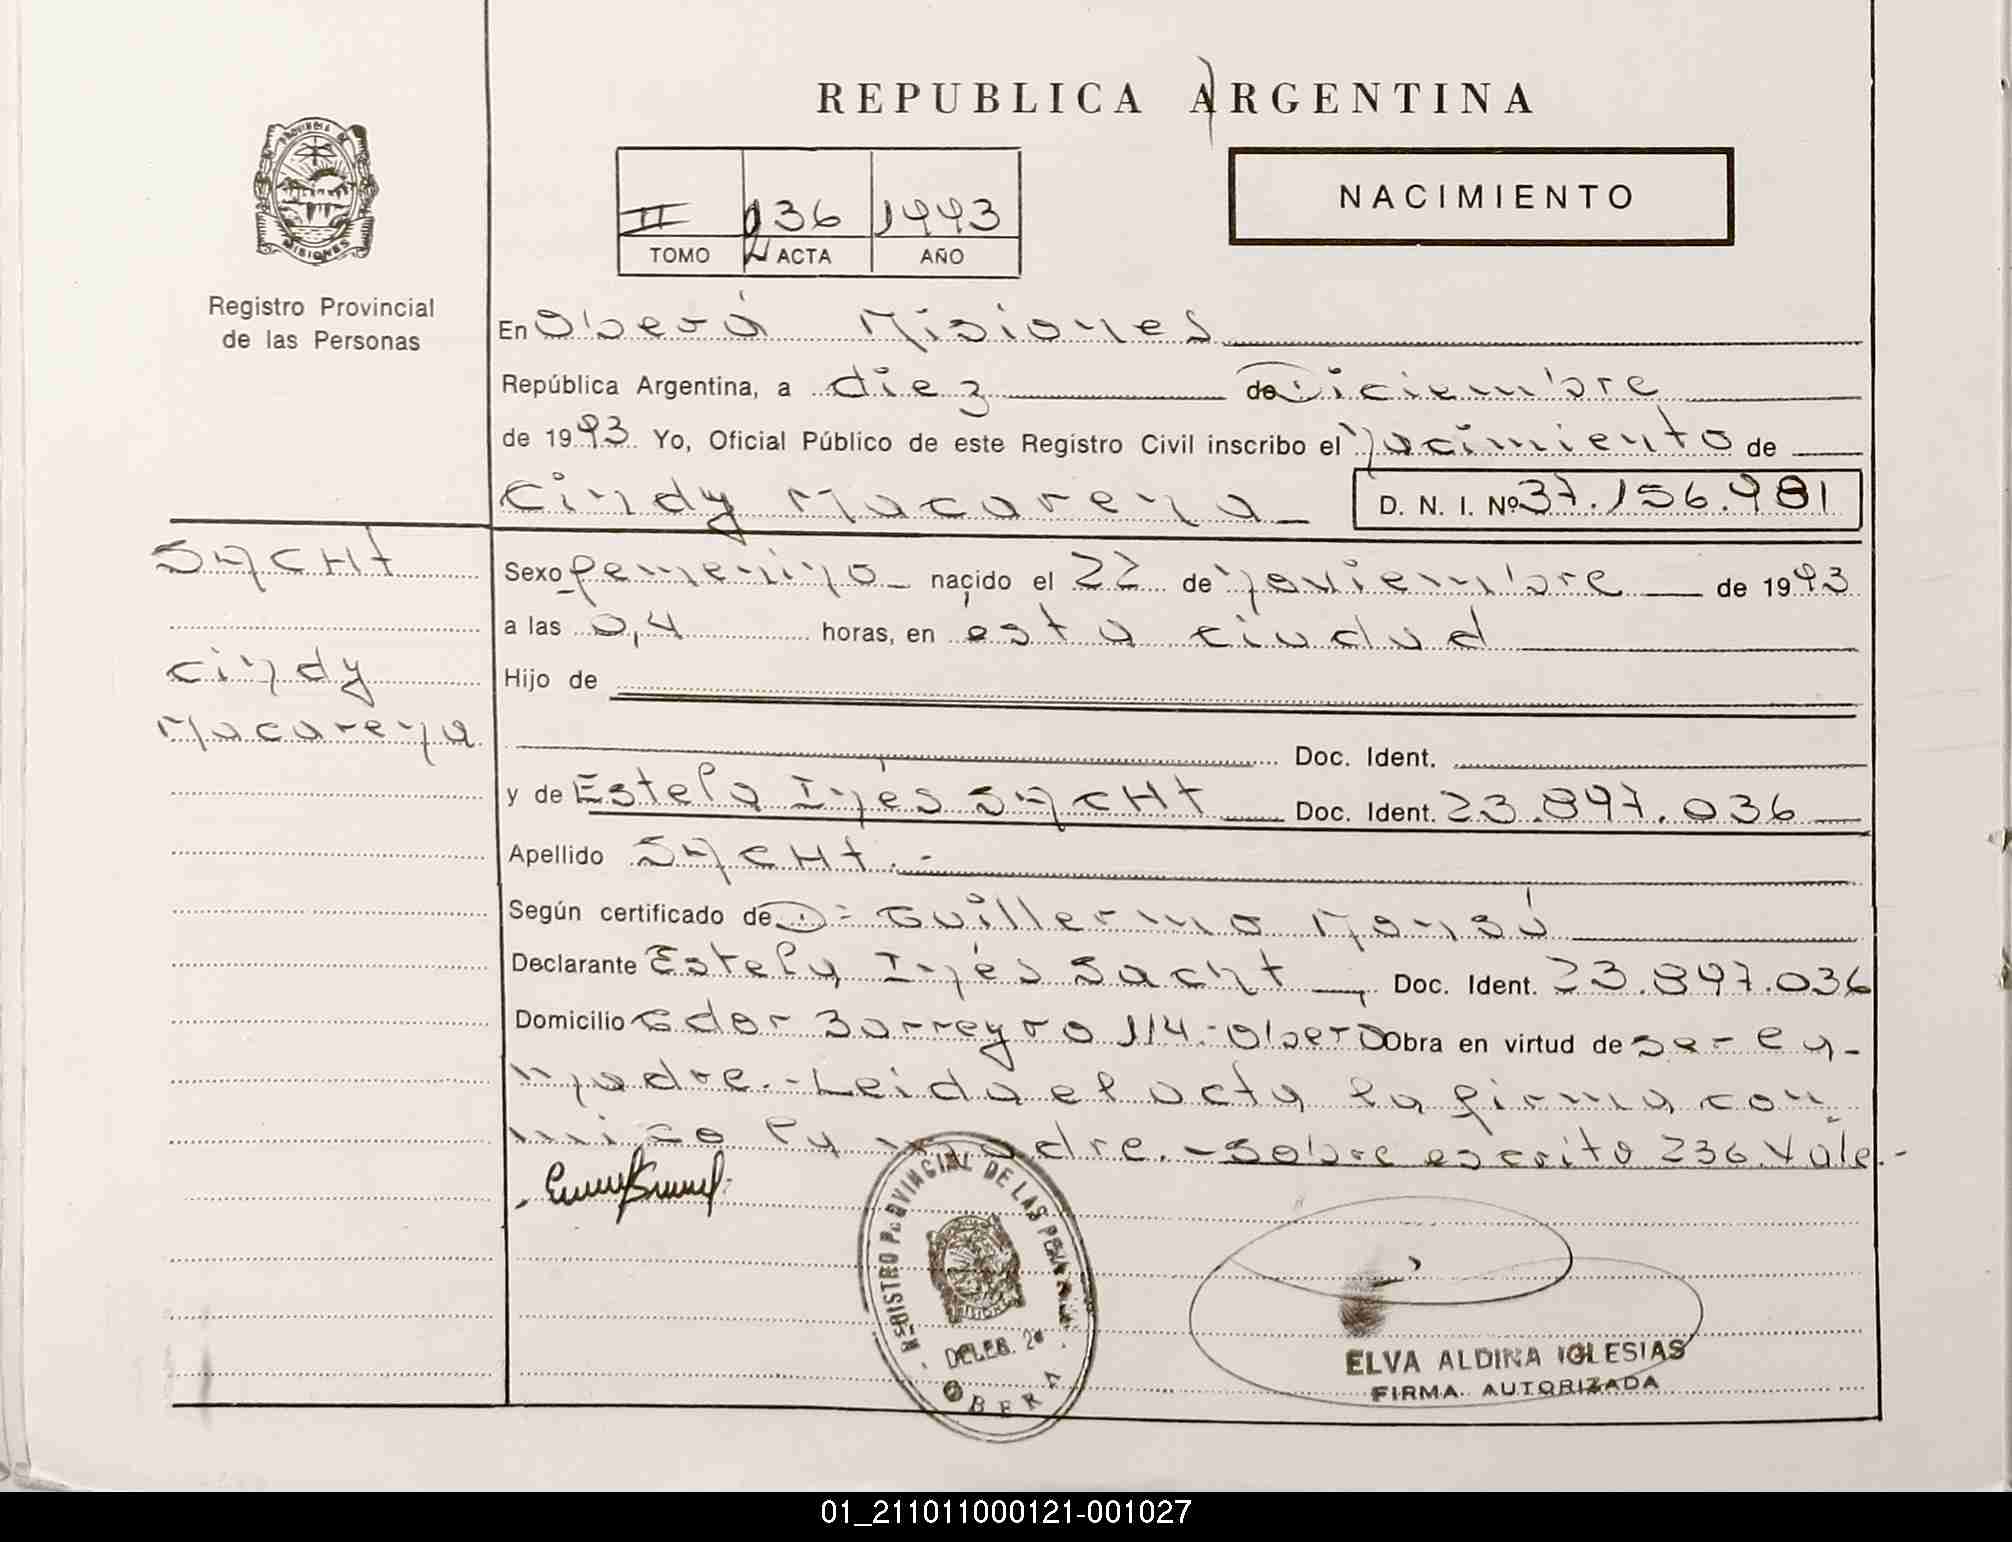 REPUBLICA ARGENTINA
PROVINCIA DE MISIONES
Registro Provincial
de las Personas
II 236 1993
TOMO ACTA AÑO
NACIMIENTO
En Oberá Misiones
República Argentina, a diez de Diciembre
de 1993 Yo, Oficial Público de este Registro Civil inscribo el Nacimiento de
Cindy Macarena D. N. I. Nº 37.156.981
SACHT
Cindy
Macarena
Sexo Femenino nacido el 22 de Noviembre de 1993
a las 0,4 horas, en ésta ciudad
Hijo de
Doc. Ident.
y de Estela Inés SACHT Doc. Ident. 23.897.036
Apellido SACHT.-
Según certificado de D: Guillermo Mansú
Declarante Estela Inés Sacht Doc. Ident. 23.897.036
Domicilio Gdor Barreyro 114.-Oberá Obra en virtud de ser la
madre.-Leida el acta la firma con
migo la madre.-Sobre escrito 236.Vale.-
REGISTRO PROVINCIAL DE LAS PERSONAS
DELEG. 2ª
OBERA
ELVA ALDINA IGLESIAS
FIRMA AUTORIZADA
01_211011000121-001027